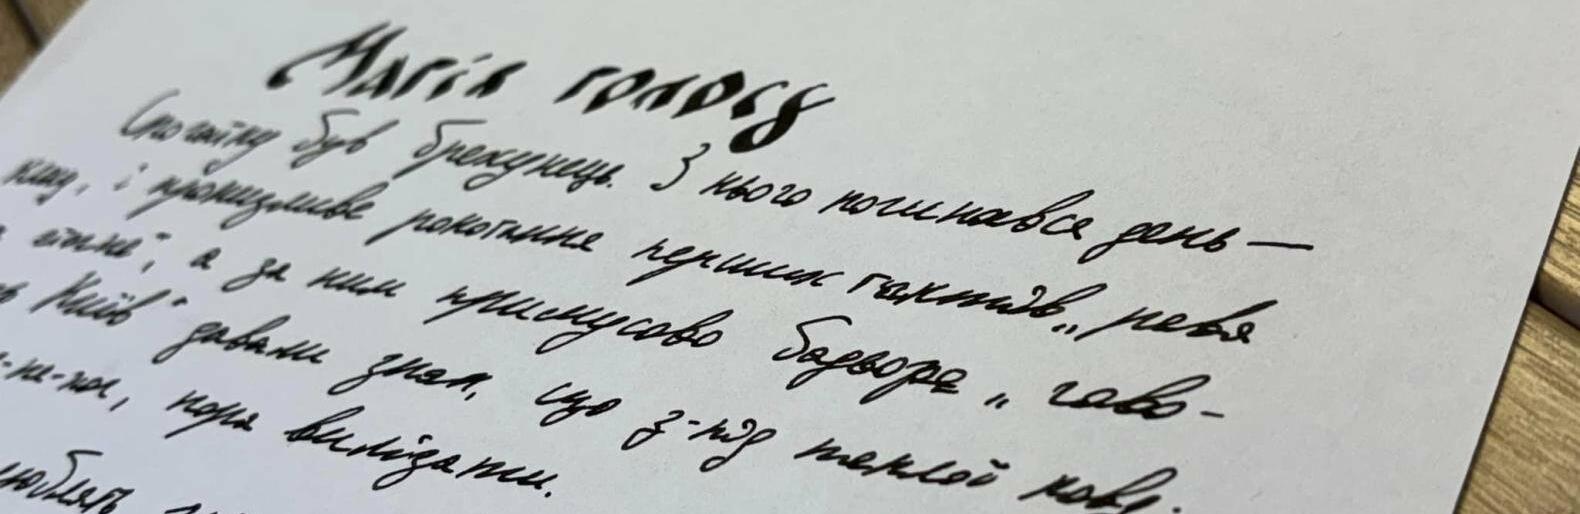 Магія голосу
Спочатку був брехунець. З нього починався день —
і пронизливе рокотання перших тактів „ реве
", а за ним примусово бадьоре „ гово-
Київ" давали знак, що з-під теплої ковд-
-не-хоч, пора вилізати.
люблять